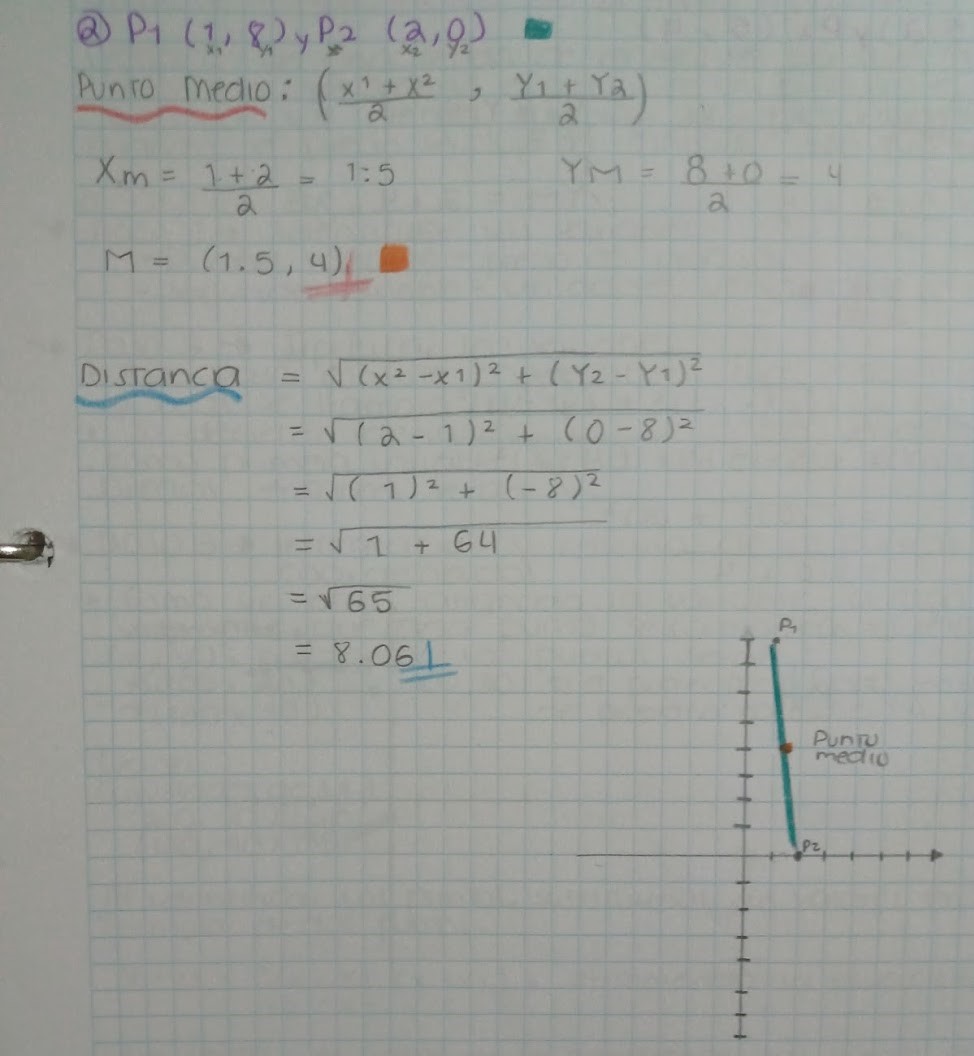 ② P1 (1, 8) y P2 (2, 0)
x1 y1 x2 y2
Punto medio: (x1 + x2 / 2 , Y1 + Y2 / 2)
Xm = 1 + 2 / 2 = 1:5 YM = 8 + 0 / 2 = 4
M = (1.5, 4)
Distanca = √(x2 - x1)² + (Y2 - Y1)²
= √(2 - 1)² + (0 - 8)²
= √(1)² + (-8)²
= √1 + 64
= √65
= 8.06
P1
Punto
medio
P2